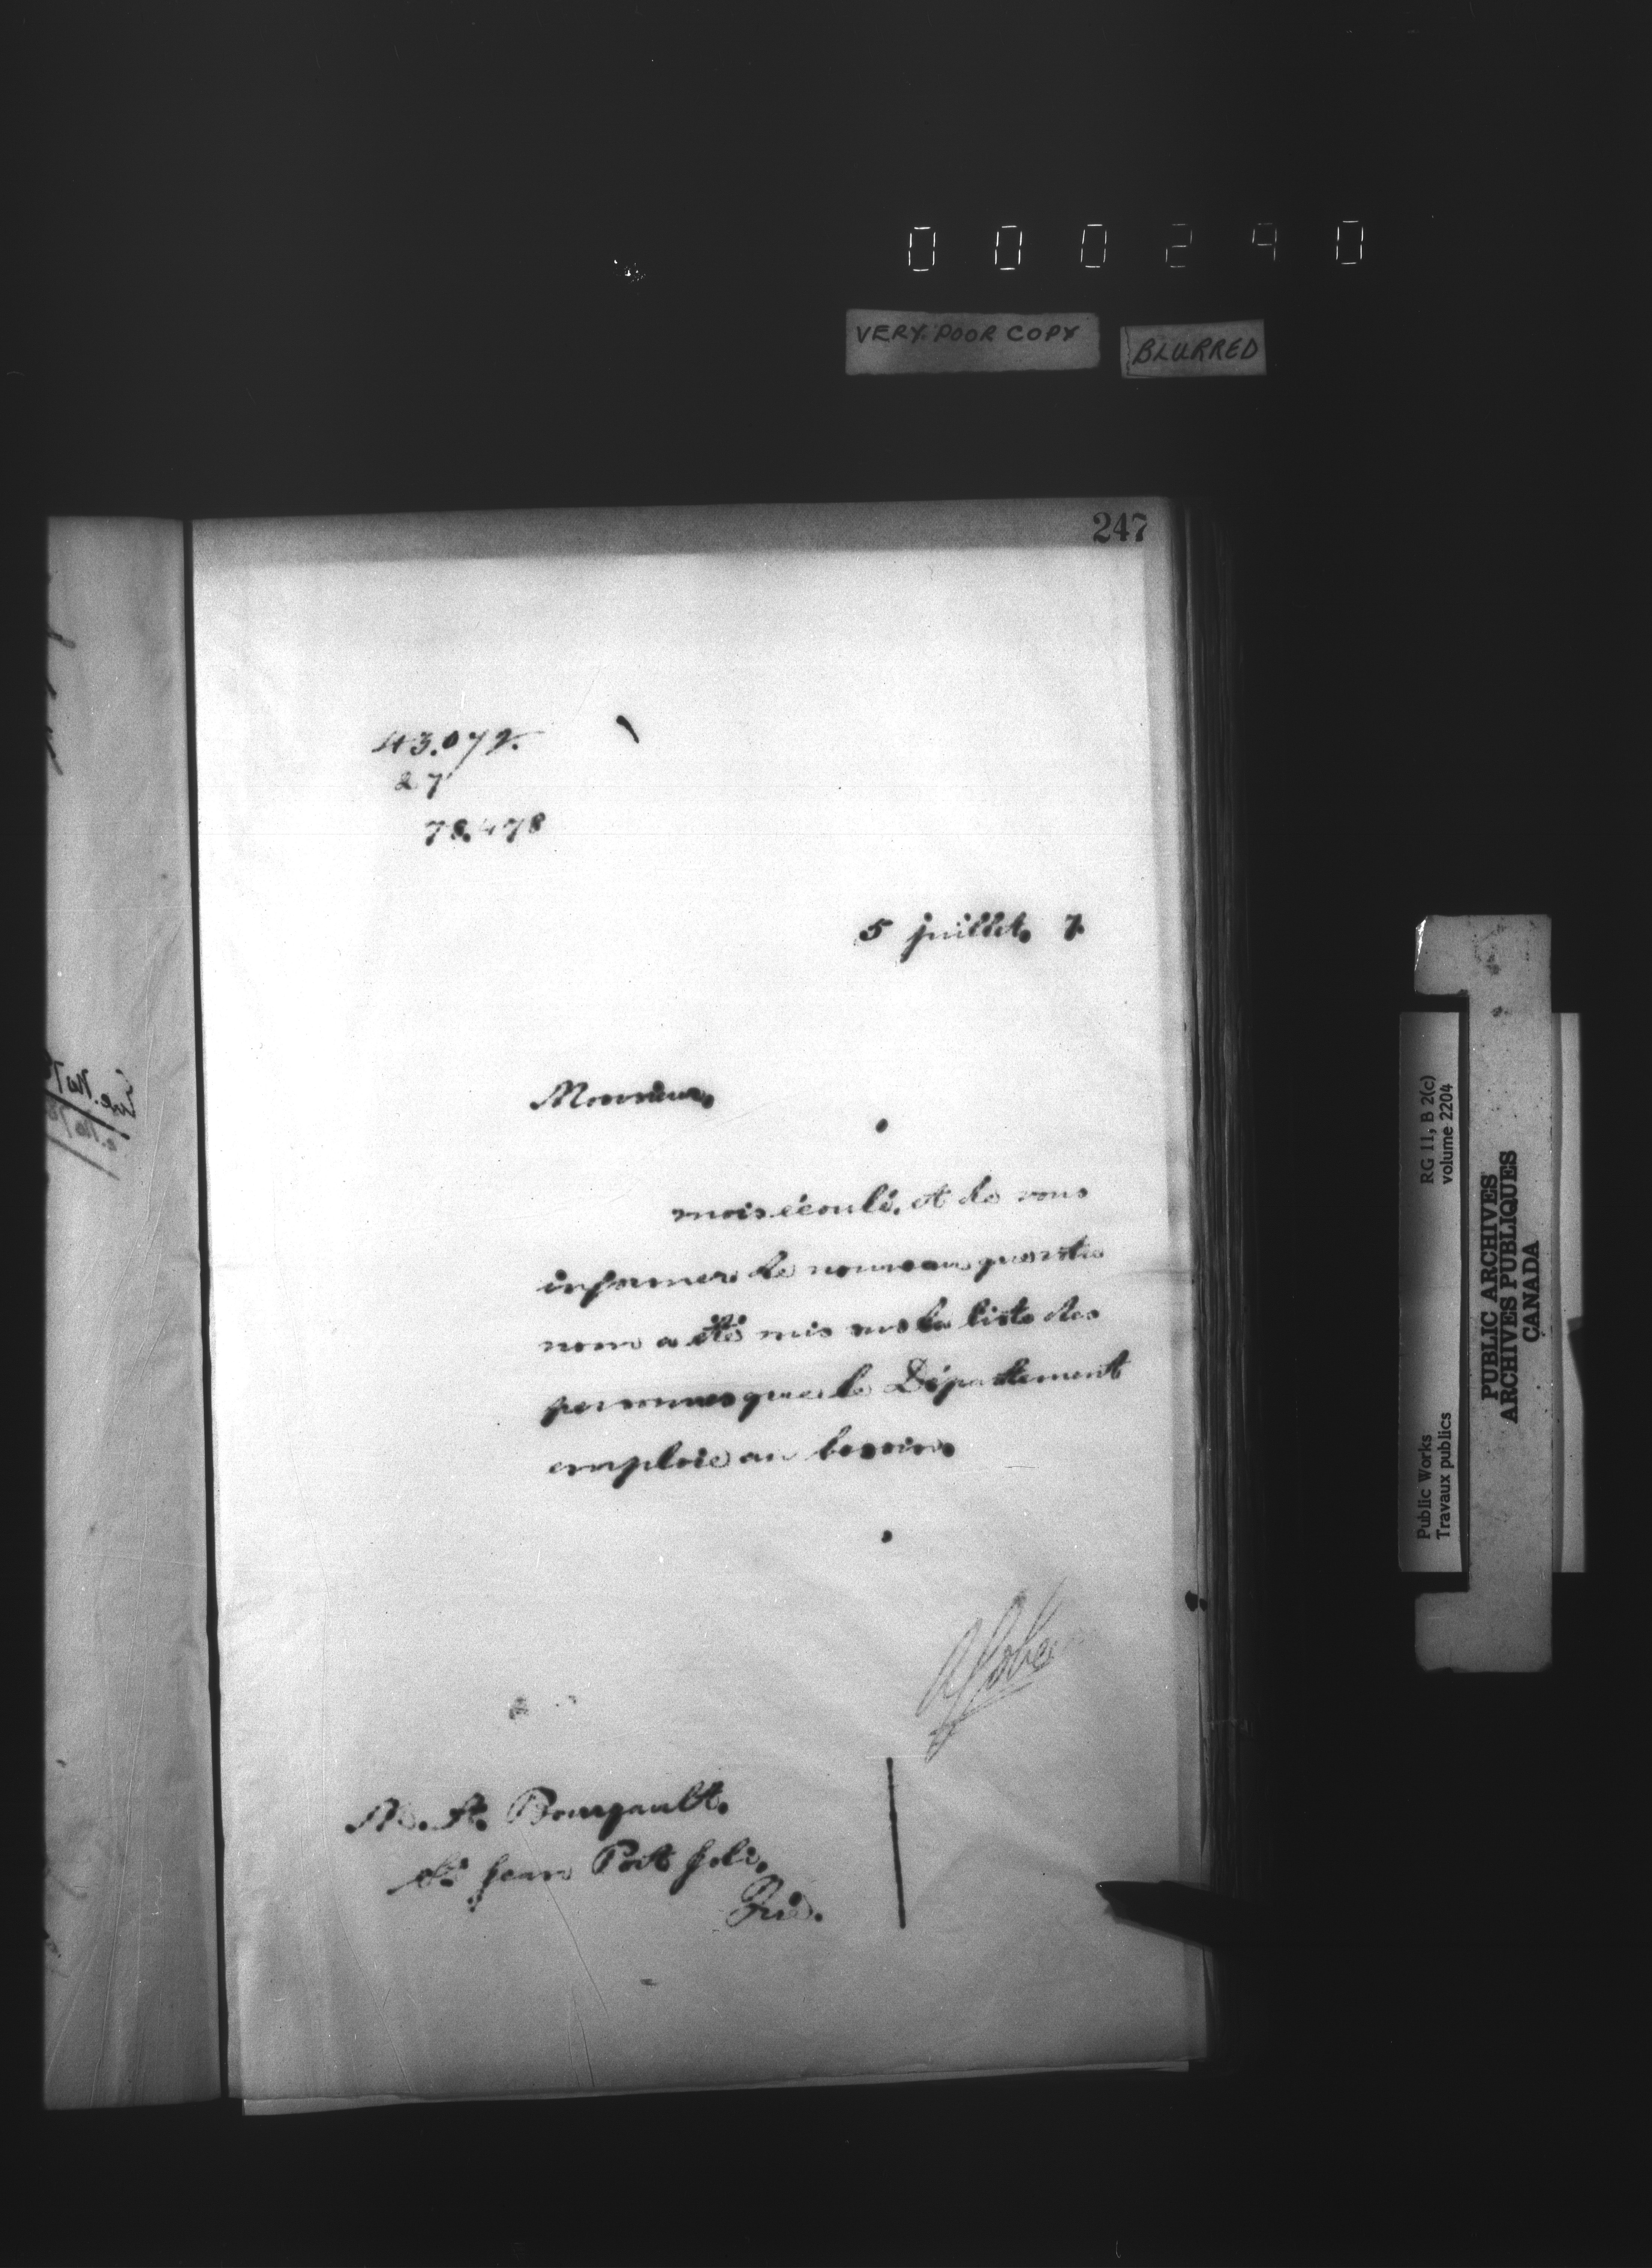 000290
VERY POOR COPY
BLURRED
247
43.072.
27
78.478
5 juillet. 7.
Monsieur,
mois écoulé, et de vous
informer de nouveau que votre
nom a été mis sur la liste des
personnes que le Département
emploie au besoin.
M. A. Bourgault.
St Jean Port Joli,
Qué.
Public Works
Travaux publics
RG 11, B 2(c)
volume 2204
PUBLIC ARCHIVES
ARCHIVES PUBLIQUES
CANADA